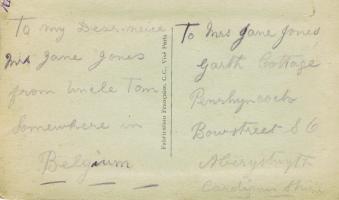 To my Dear neice
Mrs Jane Jones
from Uncle Tom
Somewhere in
Belgium
Fabrication Française, C. C., Visé Paris
To Mrs Jane Jones
Garth Cottage
Penrhyncoch
Bowstreet S O
Aberystwyth
Cardigan Shire